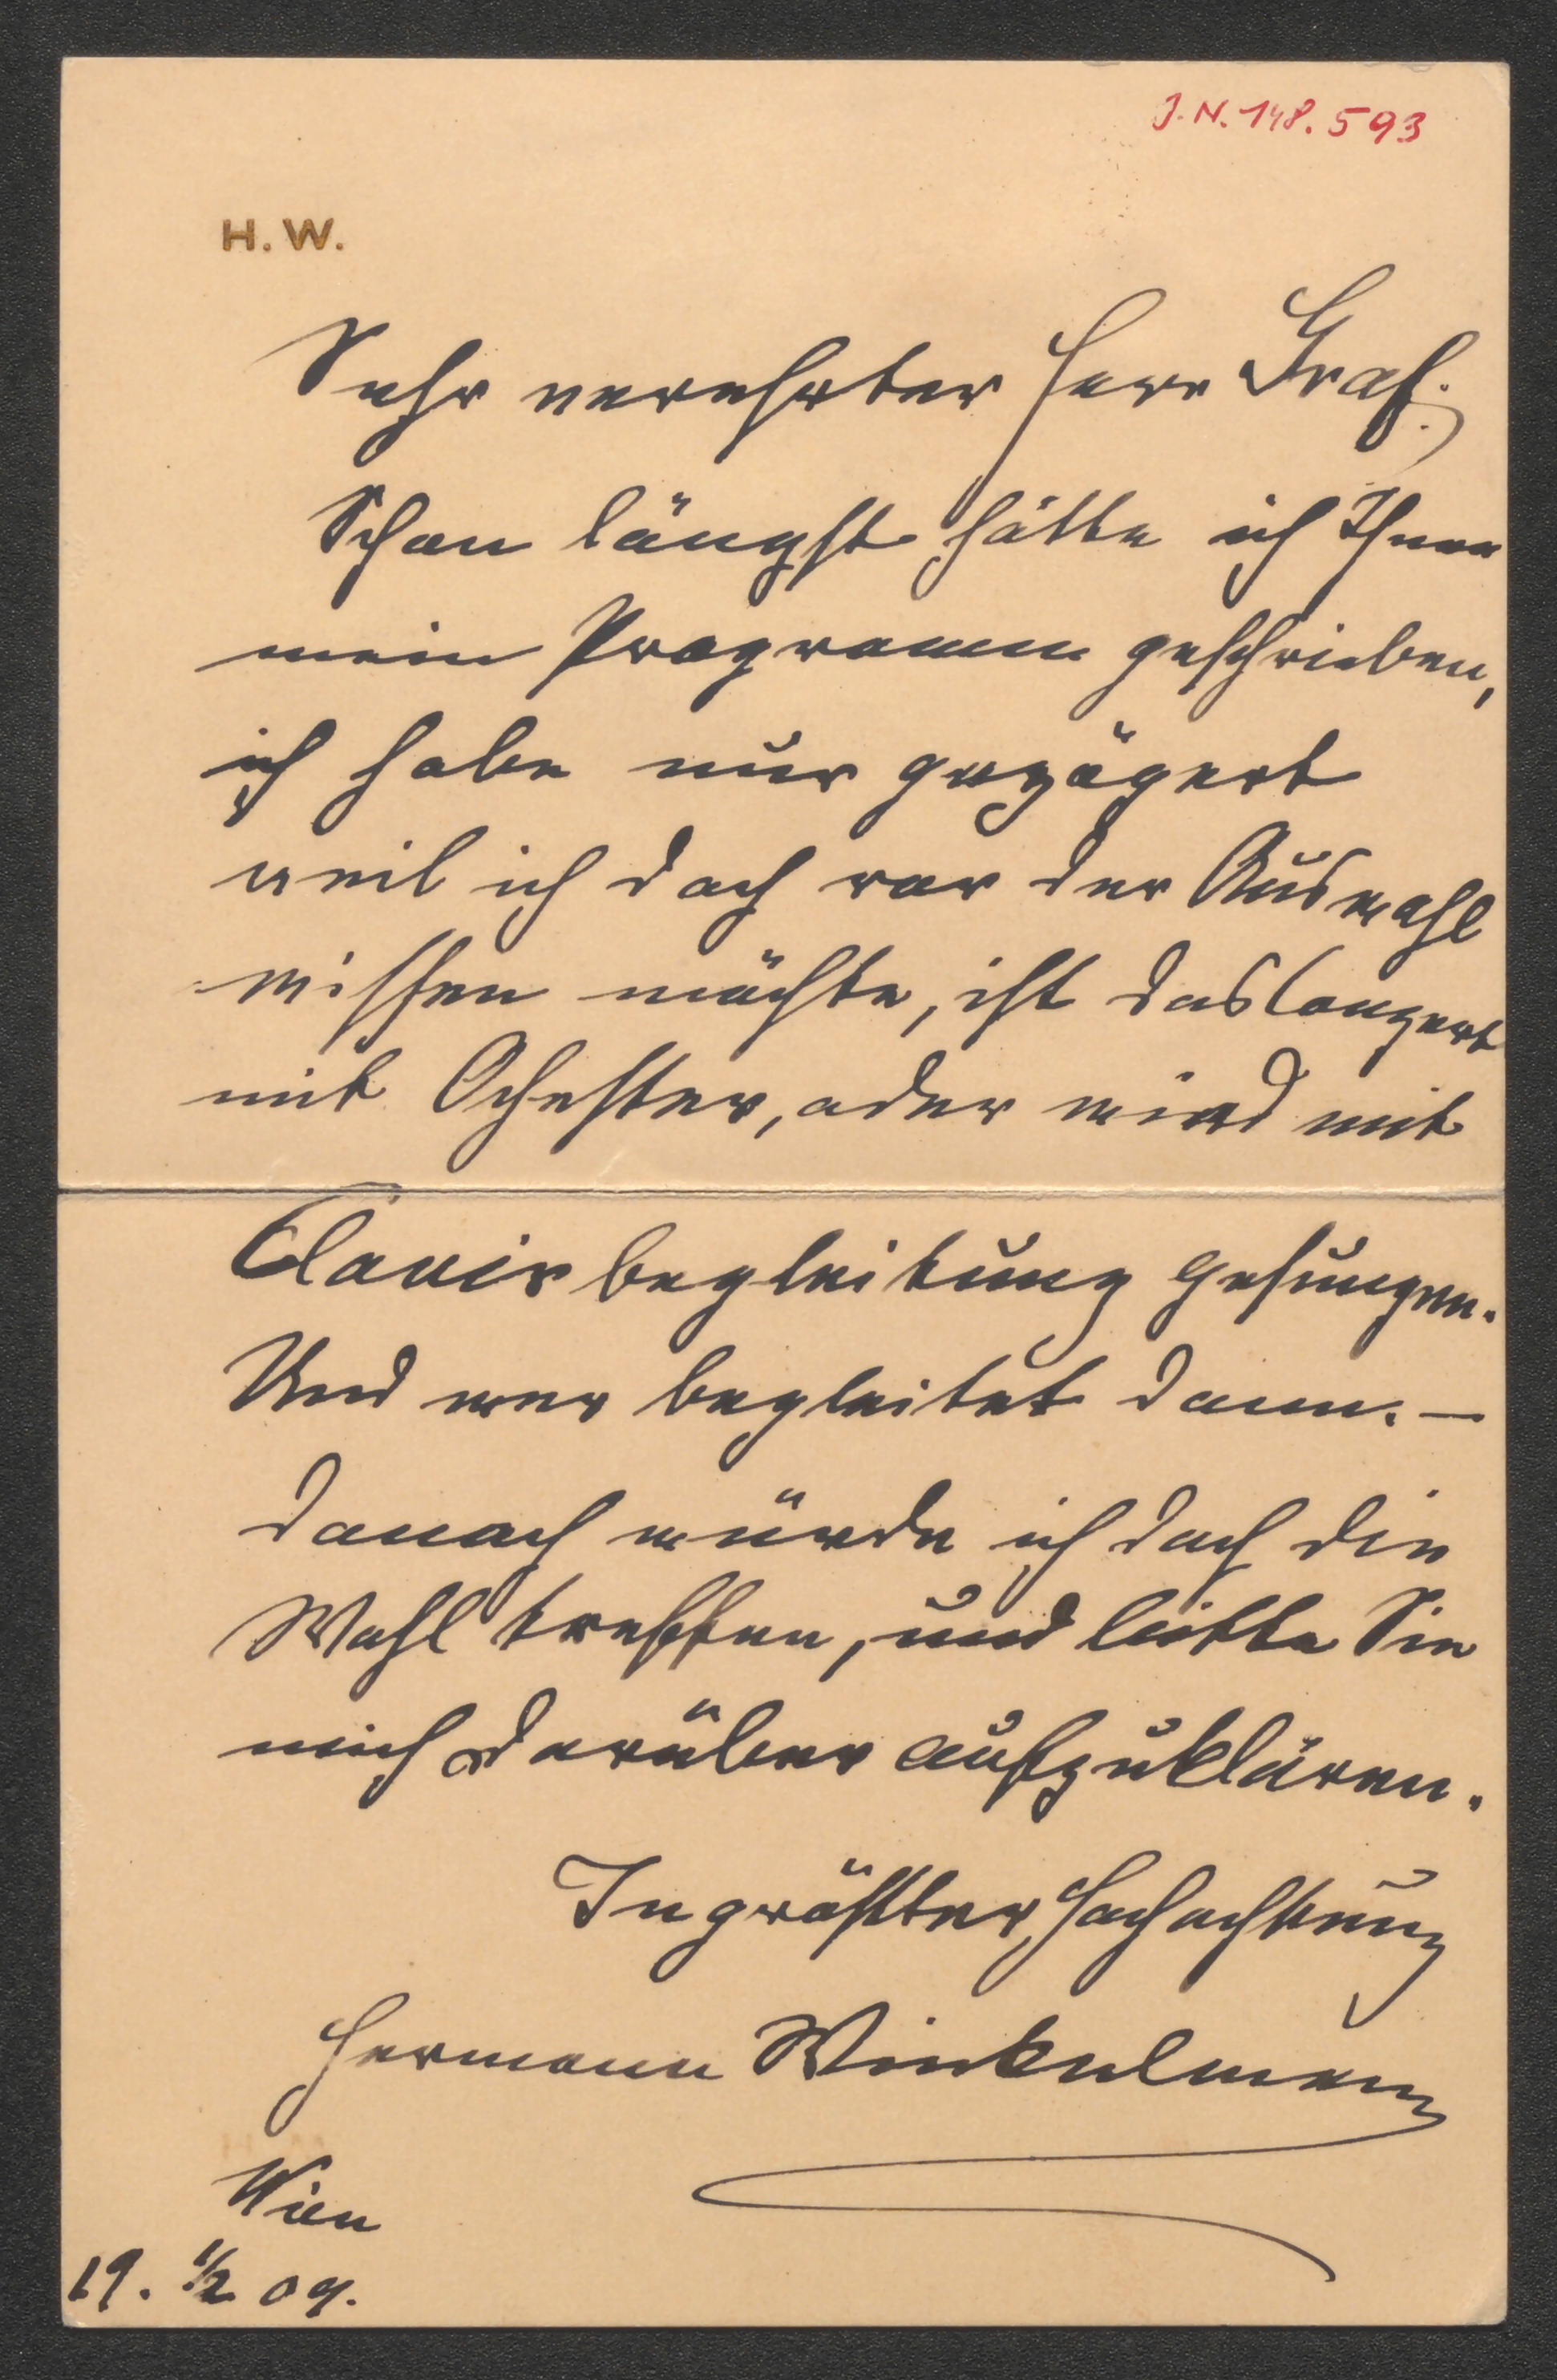 J.N. 148.593
H. W.
Sehr verehrter Herr Graf.
Schon längst hätte ich Ihnen
mein Programm geschrieben,
ich habe nur gezögert
weil ich doch vor der Auswahl
wissen möchte, ist das Conzert
mit Ochester, oder wird mit
Clavierbegleitung gesungen.
Und wer begleitet dann. —
Danach würde ich doch die
Wahl treffen, und bitte Sie
mich darüber aufzuklären.
In größter Hochachtung
Hermann Winkelmann
Wien
19. 1/2 09.